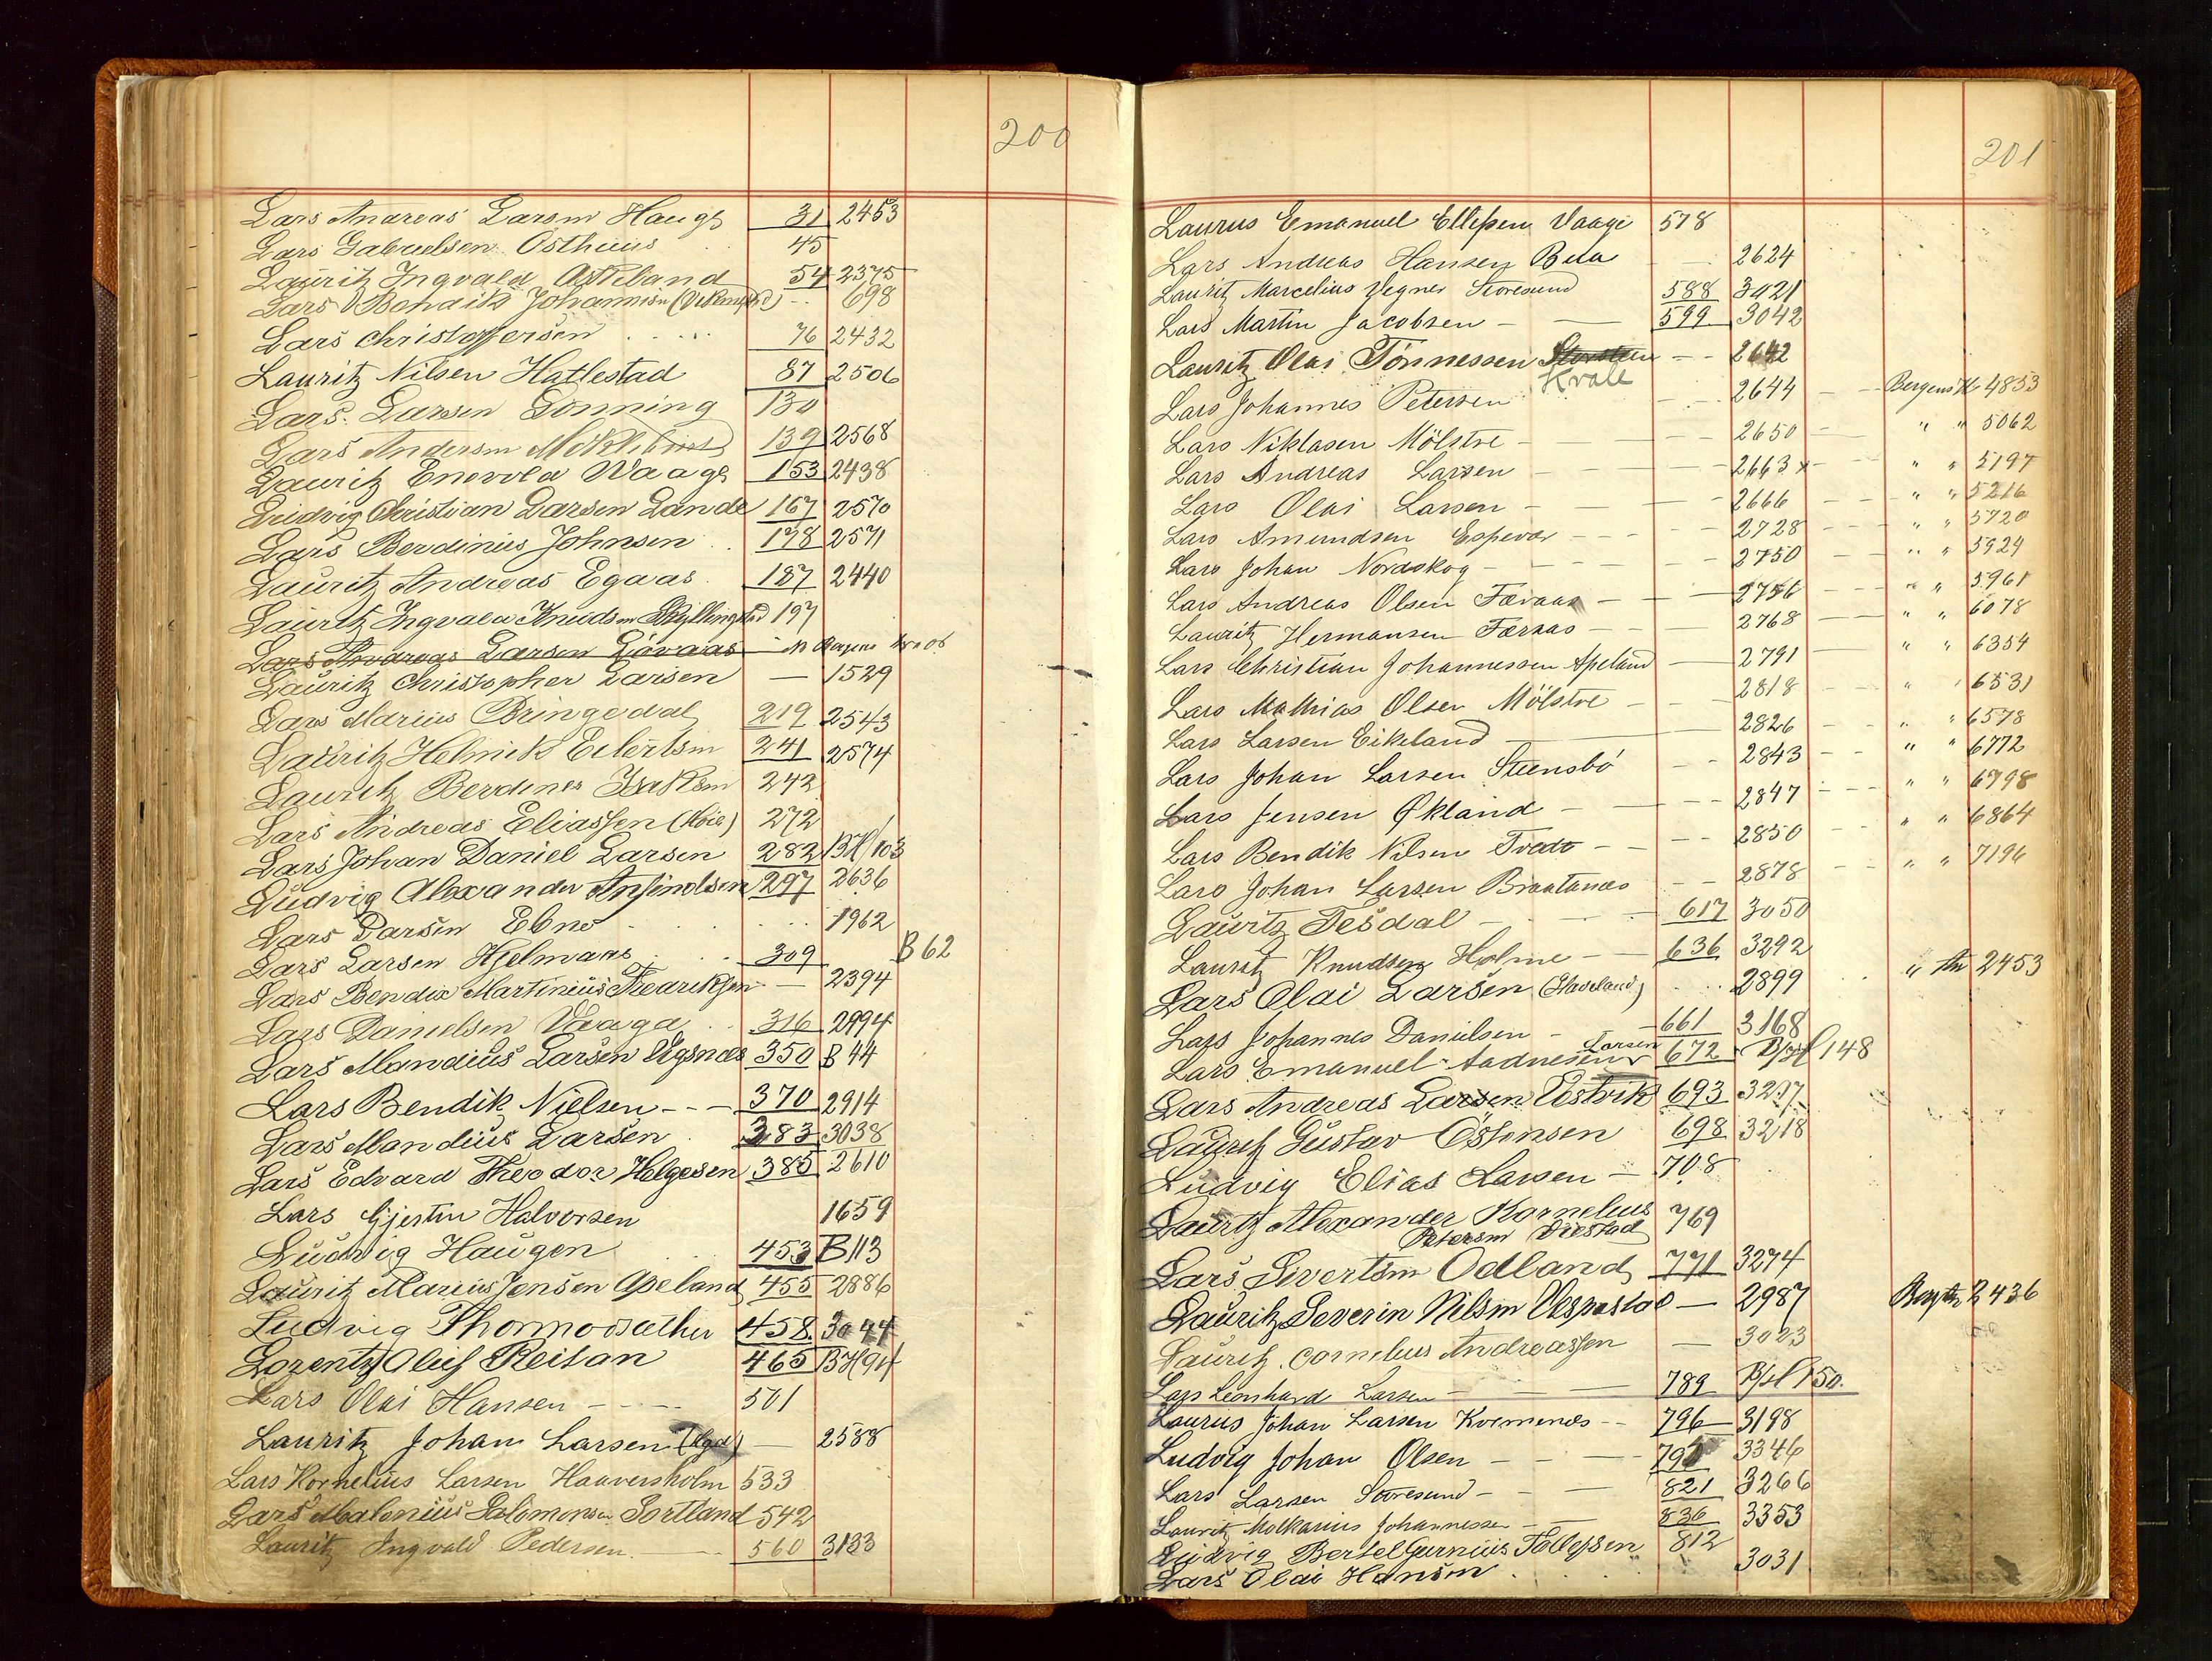 200
Lars Andreas Larsen Hauge 31 2453
Lars Gabrielsen Östhuus 45
Lauritz Ingvald Askeland 54 2375
Lars Bendik Johannesen 698
Lars Christoffersen 76 2432
Lauritz Nilsen Hatlestad 87 2506
Lars Larsen Lönning 130
Lars Andersen 139 2568
Lauritz Enevold Waage 153 2438
Ludvig Christian Larsen Lande 167 2570
Lars Berdinius Johnsen 178 2571
Lauritz Andreas Egaas 187 2440
Lauritz Ingvald Knudsen Skyllingstad 197
Lars Andreas Larsen Lövaas
Lauritz Christopher Larsen — 1529
Lars Marius Bringedal 219 2543
Lauritz Helmik Eilertsen 241 2574
Lauritz Berdines Isaksen 242
Lars Andreas Eliassen (Höie) 272
Lars Johan Daniel Larsen 282 BH/103
Ludvig Alexander Ansinolsen 297 2636
Lars Larsen Ebne 1962
Lars Larsen Hjelmaas 309 B 62
Lars Bendix Martinius Fredriksen — 2394
Lars Danielsen Vaaga 316 2994
Lars Mandius Larsen Ugsnæs 350 B 44
Lars Bendik Nielsen - - - 370 2914
Lars Mandius Larsen 383 3038
Lars Edvard Theodor Helgesen 385 2610
Lars Gjertin Halvorsen 1659
Ludvig Haugen 453 B 113
Lauritz Marius Jensen Apeland 455 2886
Ludvig Thormodsæther 458 3044
Lorentz Oluf Reitan 465 BH 94
Lars Olai Hansen - - - - 501
Lauritz Johan Larsen — 2588
Lars Kornelius Larsen Haaversholm 533
Lars Malenius Salomonsen Sortland 542
Lauritz Ingvald Pedersen — 560 3133
201
Laurus Emanuel Ellefsen Vaage 578
Lars Andreas Hansen Bua 2624
Lauritz Marcelius Vegner Storesund 588 3021
Lars Martin Jacobsen — 599 3042
Lauritz Olai Tönnessen - - 2642
Kvale
Lars Johannes Petersen 2644 — Bergens H 4853
Lars Niklasen Mölstre — 2650 — " " 5062
Lars Andreas Larsen — 2663 x — " " 5197
Lars Olai Larsen — 2666 - - " " 5216
Lars Amundsen Espevær - - - 2728 - - " " 5720
Lars Johan Nordskog - - - 2750 — " " 5924
Lars Andreas Olsen Færaas — 2756 " " 5961
Lauritz Hermansen Færaas — 2768 — " " 6078
Lars Christian Johannessen Apeland — 2791 — " " 6354
Lars Mathias Olsen Mölstre — 2818 - - " " 6531
Lars Larsen Eikeland — 2826 - - " " 6578
Lars Johan Larsen Stensbö - - 2843 - - " " 6772
Lars Jensen Økland — 2847 - - - " " 6798
Lars Bendik Nilsen Tvedt - - - 2850 - - " " 6864
Lars Johan Larsen Braatanæs - - 2878 - - " " 7196
Lauritz Tesdal — 617 3050
Lauritz Knudsen Holme — 636 3292
Lars Olai Larsen (Haveland) 2899 " th 2453
Lars Johannes Danielsen — 661 3168
Larsen
Lars Emanuel Aadnesen 672 B/H 148
Lars Andreas Larsen Vestvik 693 3297
Lauritz Gustav Östensen 698 3218
Ludvig Elias Larsen — 708
Lauritz Alexander Kornelius 769
Petersen Viestad
Lars Sivertsen Odland 771 3274
Lauritz Severin Nilsen Vespestad — 2987 2436
Lauritz Cornelius Andreassen — 3023
Lars Leonhard Larsen — 789 B/H 150.
Laurus Johan Larsen Kvemenæs - - 796 3198
Ludvig Johan Olsen — 3346
Lars Larsen Storesund — 821 3266
Lauritz Molkarius Johannessen — 836 3353
Ludvig Bertel Gurnius Tollefsen 812
Lars Olai Hansen 3031